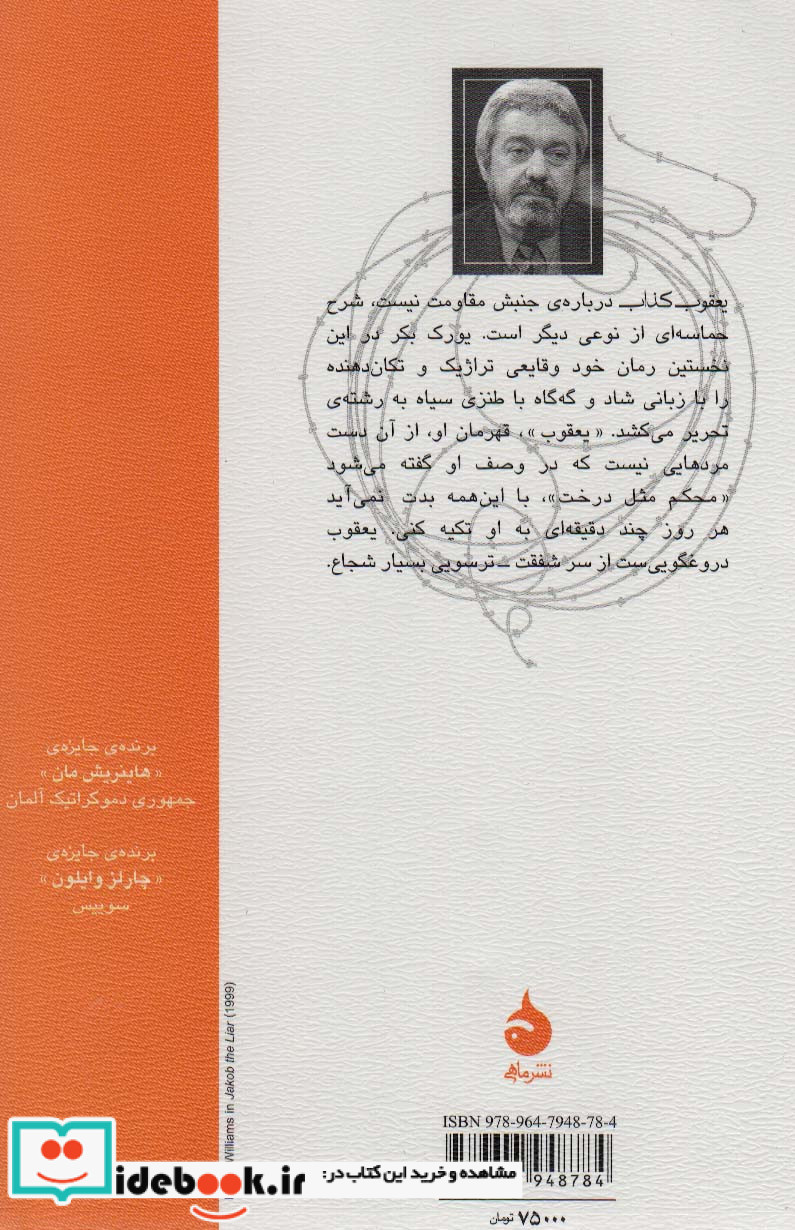 یعقوب کذاب درباره‌ی جنبش مقاومت نیست، شرح
حماسه‌ای از نوعی دیگر است. یورک بکر در این
نخستین رمان خود وقایعی تراژیک و تکان‌دهنده
را با زبانی شاد و گه‌گاه با طنزی سیاه به رشته‌ی
تحریر می‌کشد. «یعقوب»، قهرمان او، از آن دست
مردهایی نیست که در وصف او گفته می‌شود
«محکم مثل درخت»، با این‌همه بدت نمی‌آید
هر روز چند دقیقه‌ای به او تکیه کنی. یعقوب
دروغگویی‌ست از سر شفقت ـ ترسویی بسیار شجاع.
برنده‌ی جایزه‌ی
«هاینریش مان»
جمهوری دموکراتیک آلمان
برنده‌ی جایزه‌ی
«چارلز وایلون»
سوییس
Williams in Jakob the Liar (1999)
نشر ماهی
ISBN 978-964-7948-78-4
948784
۷۵۰۰۰ تومان
مشاهده و خرید این کتاب در:
idebook.ir